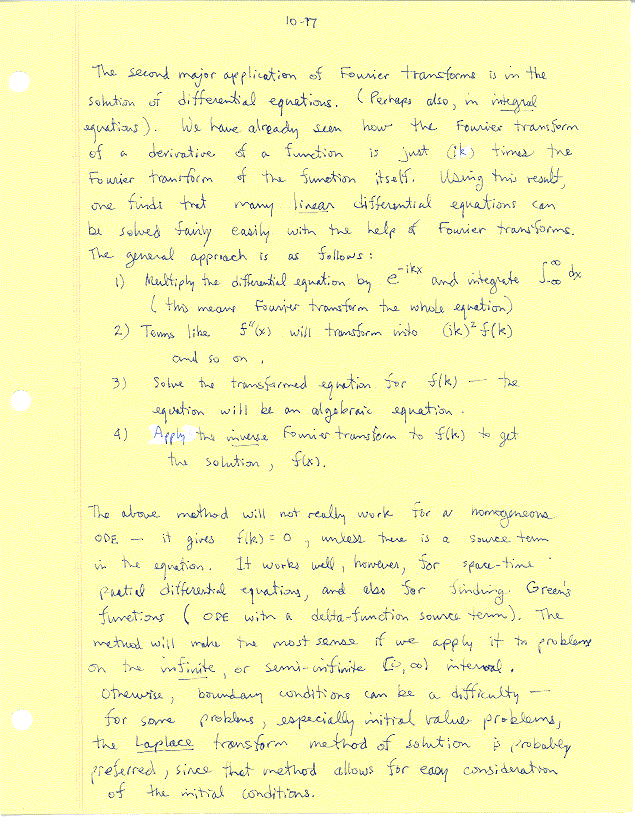 10-17
The second major application of Fourier transforms is in the
solution of differential equations. (Perhaps also, in integral
equations). We have already seen how the Fourier transform
of a derivative of a function is just (ik) times the
Fourier transform of the function itself. Using this result,
one finds that many linear differential equations can
be solved fairly easily with the help of Fourier transforms.
The general approach is as follows:
1) Multiply the differential equation by e^{-ikx} and integrate ∫_{-∞}^{∞} dx
(this means Fourier transform the whole equation)
2) Terms like f''(x) will transform into (ik)² f(k)
and so on.
3) Solve the transformed equation for f(k) — the
equation will be an algebraic equation.
4) Apply the inverse Fourier transform to f(k) to get
the solution, f(x).
The above method will not really work for a homogeneous
ODE — it gives f(k) = 0, unless there is a source term
in the equation. It works well, however, for space-time
partial differential equations, and also for finding Green's
functions (ODE with a delta-function source term). The
method will make the most sense if we apply it to problems
on the infinite, or semi-infinite [0,∞) interval.
Otherwise, boundary conditions can be a difficulty —
for some problems, especially initial value problems,
the Laplace transform method of solution is probably
preferred, since that method allows for easy consideration
of the initial conditions.